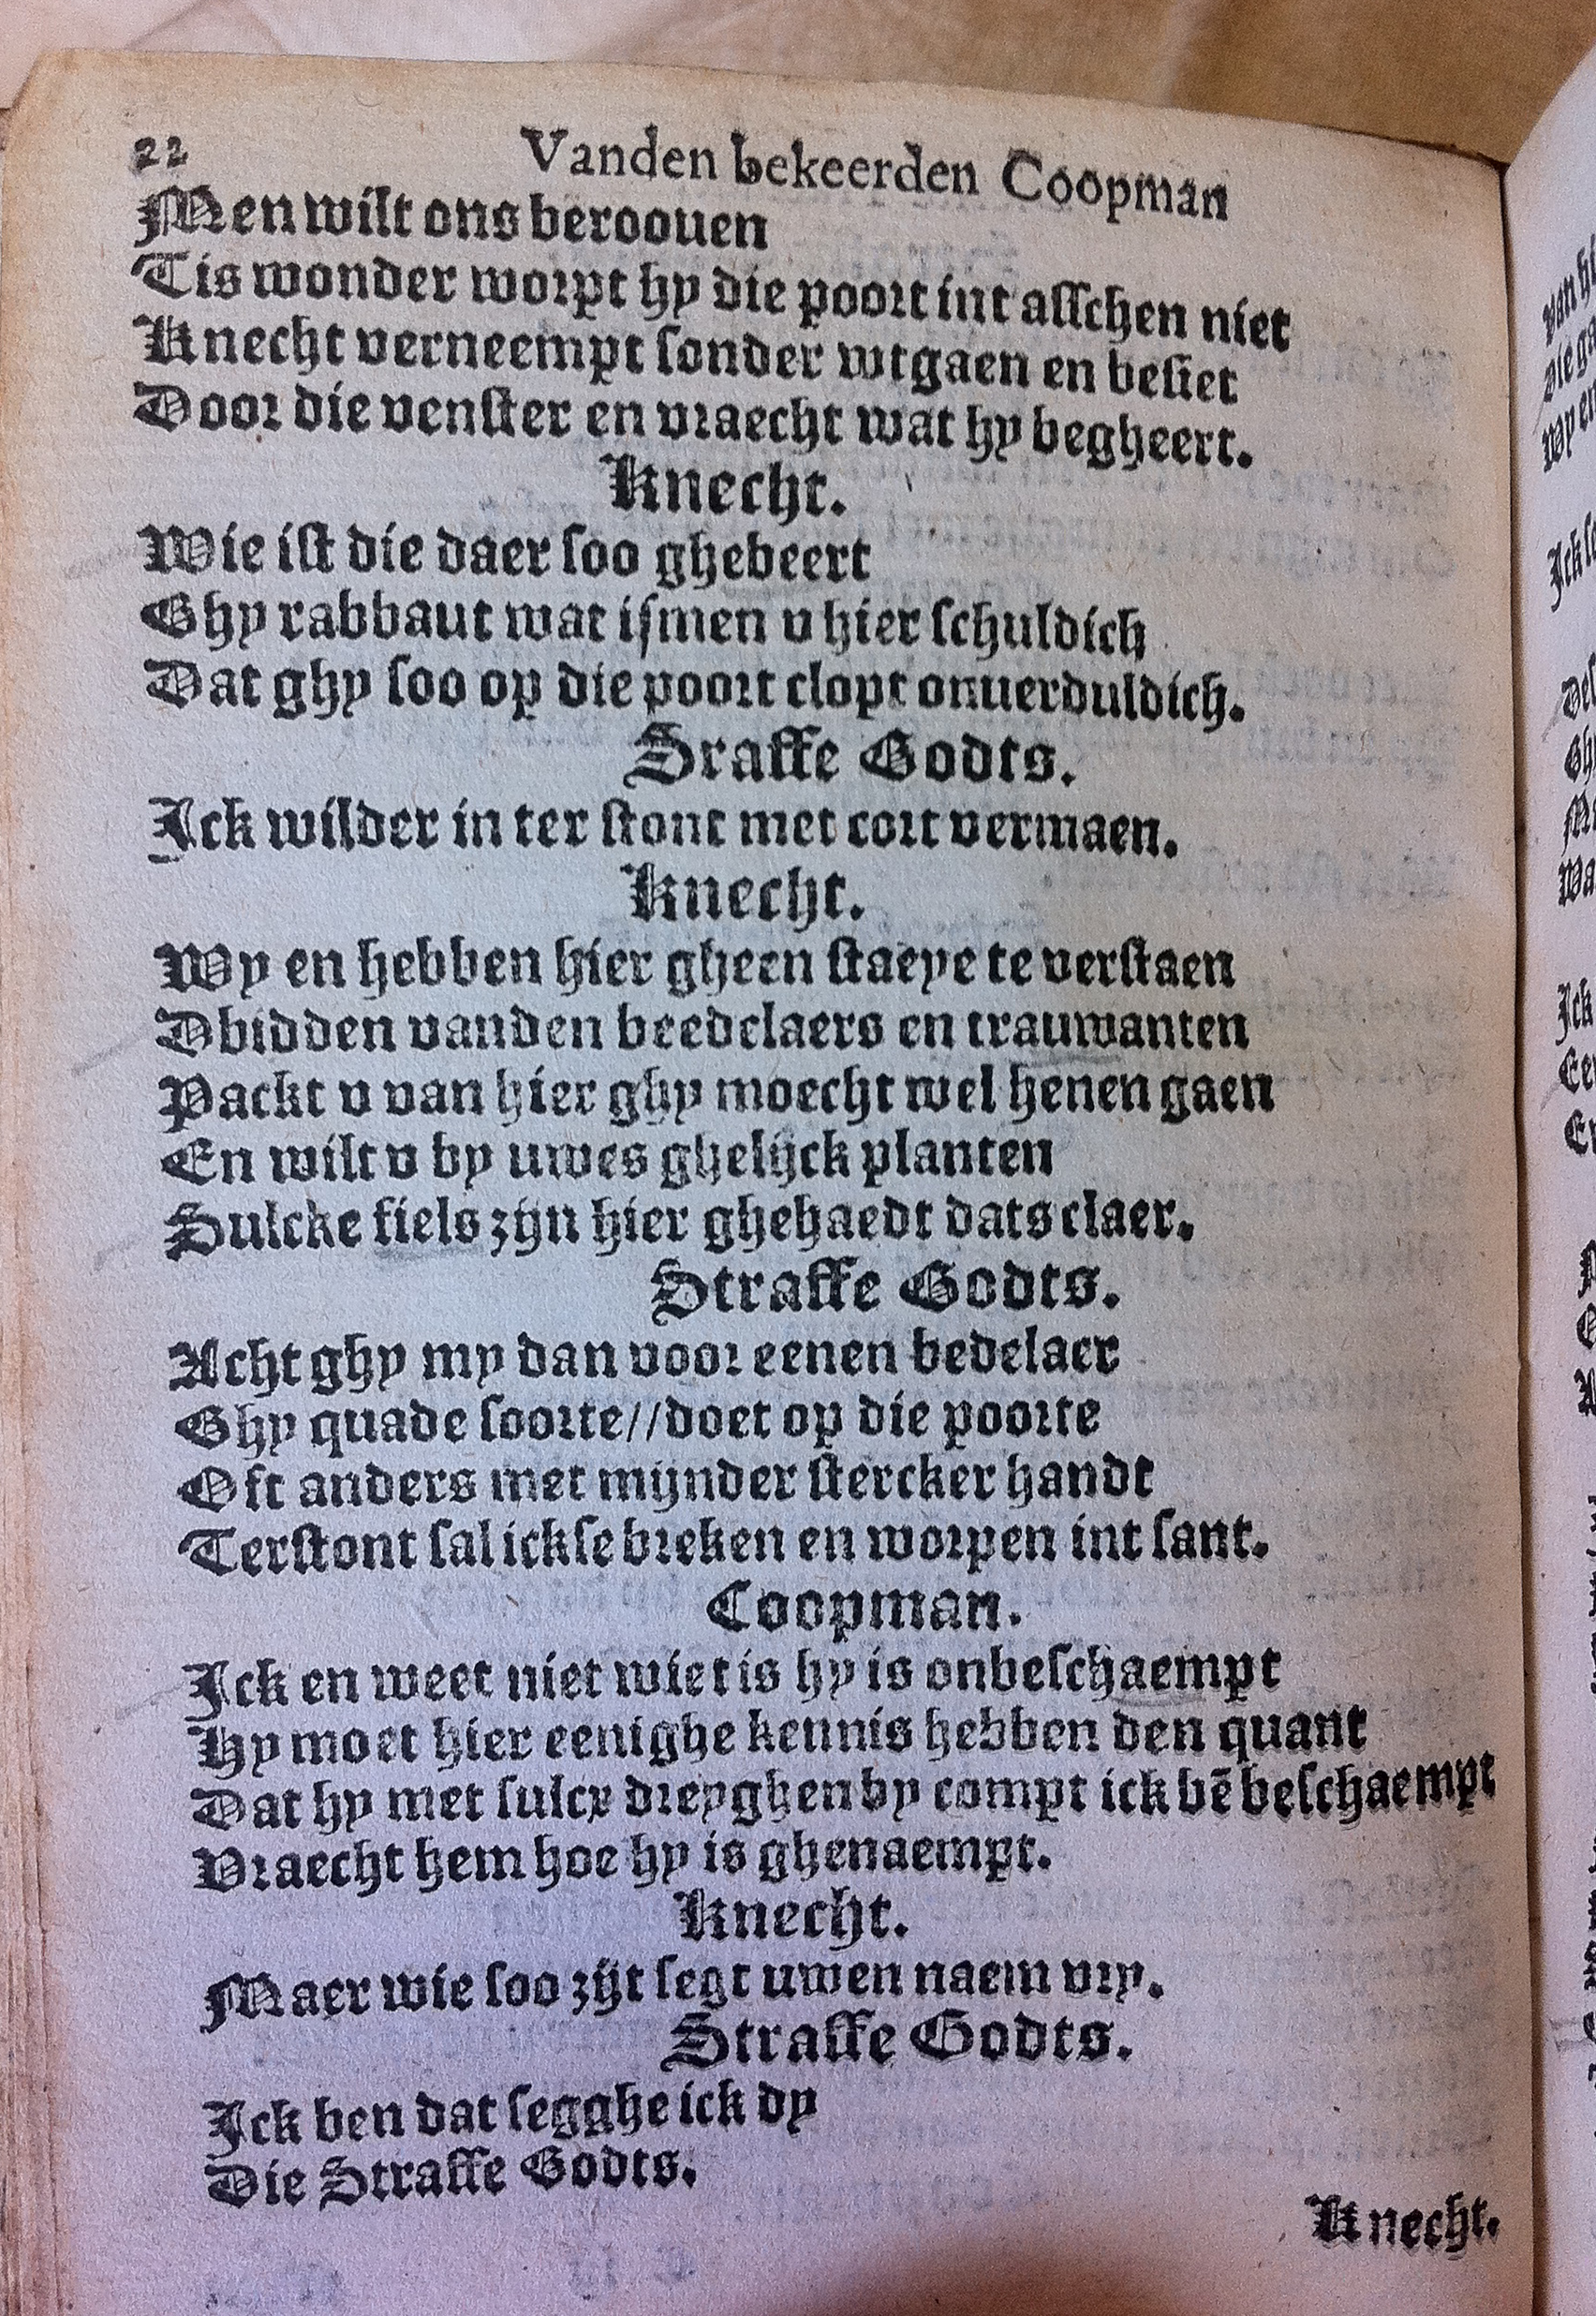 22 Vanden bekeerden Coopman
Men wilt ons beroouen
Tis wonder worpt hy die poort int asschen niet
Knecht verneempt sonder wtgaen en besiet
Door die venster en vraecht wat hy begheert.
Knecht.
Wie ist die daer soo ghebeert
Ghy rabbaut wat ismen v hier schuldich
Dat ghy soo op die poort clopt onuerduldich.
Sraffe Godts.
Ick wilder in ter stont met cort vermaen.
Knecht.
Wy en hebben hier gheen staeye te verstaen
Dbidden vanden beedelaers en trauwanten
Packt v van hier ghy moecht wel henen gaen
En wilt v by uwes ghelijck planten
Sulcke fiels zijn hier ghehaedt dats claer.
Straffe Godts.
Acht ghy my dan voor eenen bedelaer
Ghy quade soorte//doet op die poorte
Oft anders met mijnder stercker handt
Terstont sal ickse breken en worpen int sant.
Coopman.
Ick en weet niet wiet is hy is onbeschaempt
Hy moet hier eenighe kennis hebben den quant
Dat hy met sulcx dreyghen by compt ick bē beschaempt
Vraecht hem hoe hy is ghenaempt.
Knecht.
Maer wie soo zijt segt uwen naem vry.
Straffe Godts.
Ick ben dat segghe ick dy
Die Straffe Godts.
Knecht.